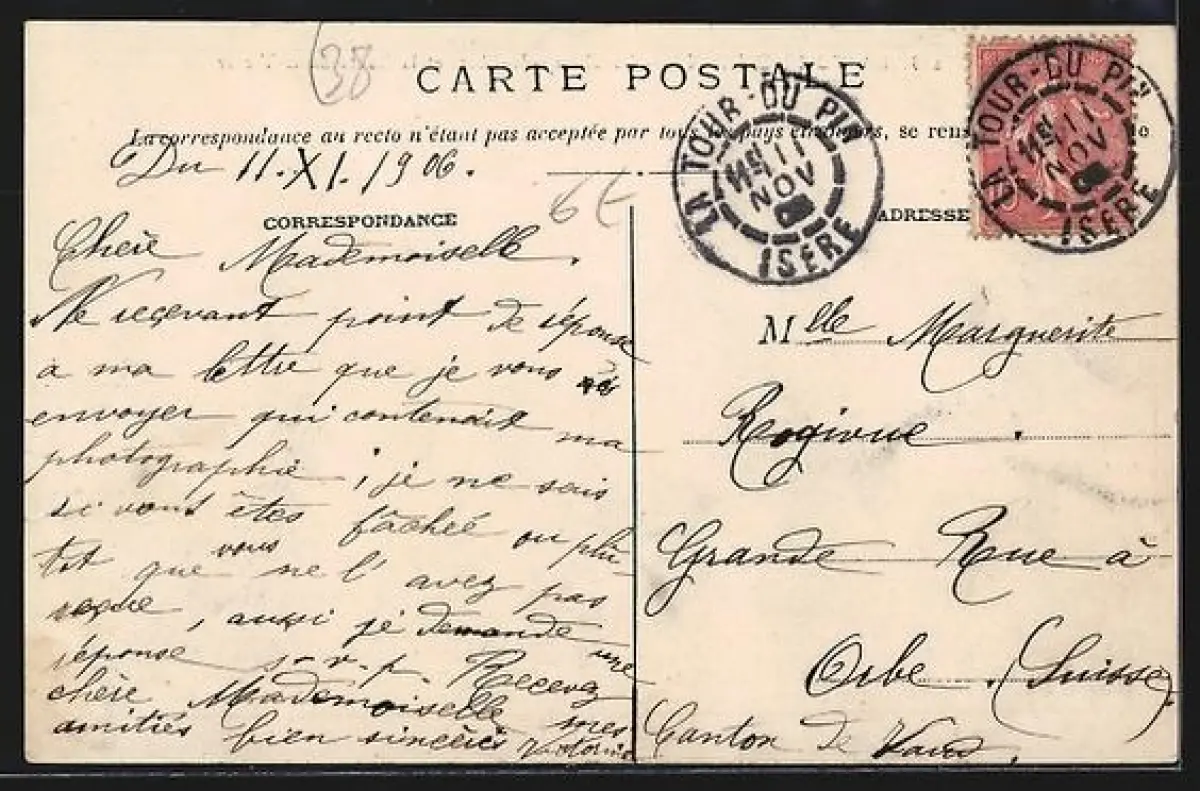 (38
CARTE POSTALE
La correspondance au recto n'étant pas acceptée par tous les pays étrangers, se rens
Du 11.XI.1906.
6€
CORRESPONDANCE
ADRESSE
LA TOUR-DU PIN
11
NOV
ISÈRE
LA TOUR-DU PIN
11
NOV
ISÈRE
Chèie Mademoiselle.
Ne reçevant point de réponse
a ma lettre que je vous ai
envoyer qui contenait ma
photographie ; je ne sais
si vous êtes fâcheé ou plu
tot que vous ne l'avez pas
reçue, aussi je demande une
réponse s-v-p. Recevez
chère Mademoiselle mes
amitiés bien sincères
Mlle Marguerite
Rogivue.
Grande Rue à
Orbe. (Suisse)
Canton de Vaud.